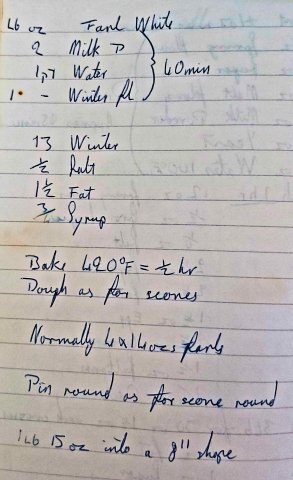 Lb oz Farl White
2 Milk P
Water 40min
1 - Winter fl
13 Winter
½ Salt
1½ Fat
Syrup
Bake 420°F = ½ hr
Dough as for scones
Normally 4x14ozs farls
Pin round as for scone round
1Lb 15 oz into a 8" shape